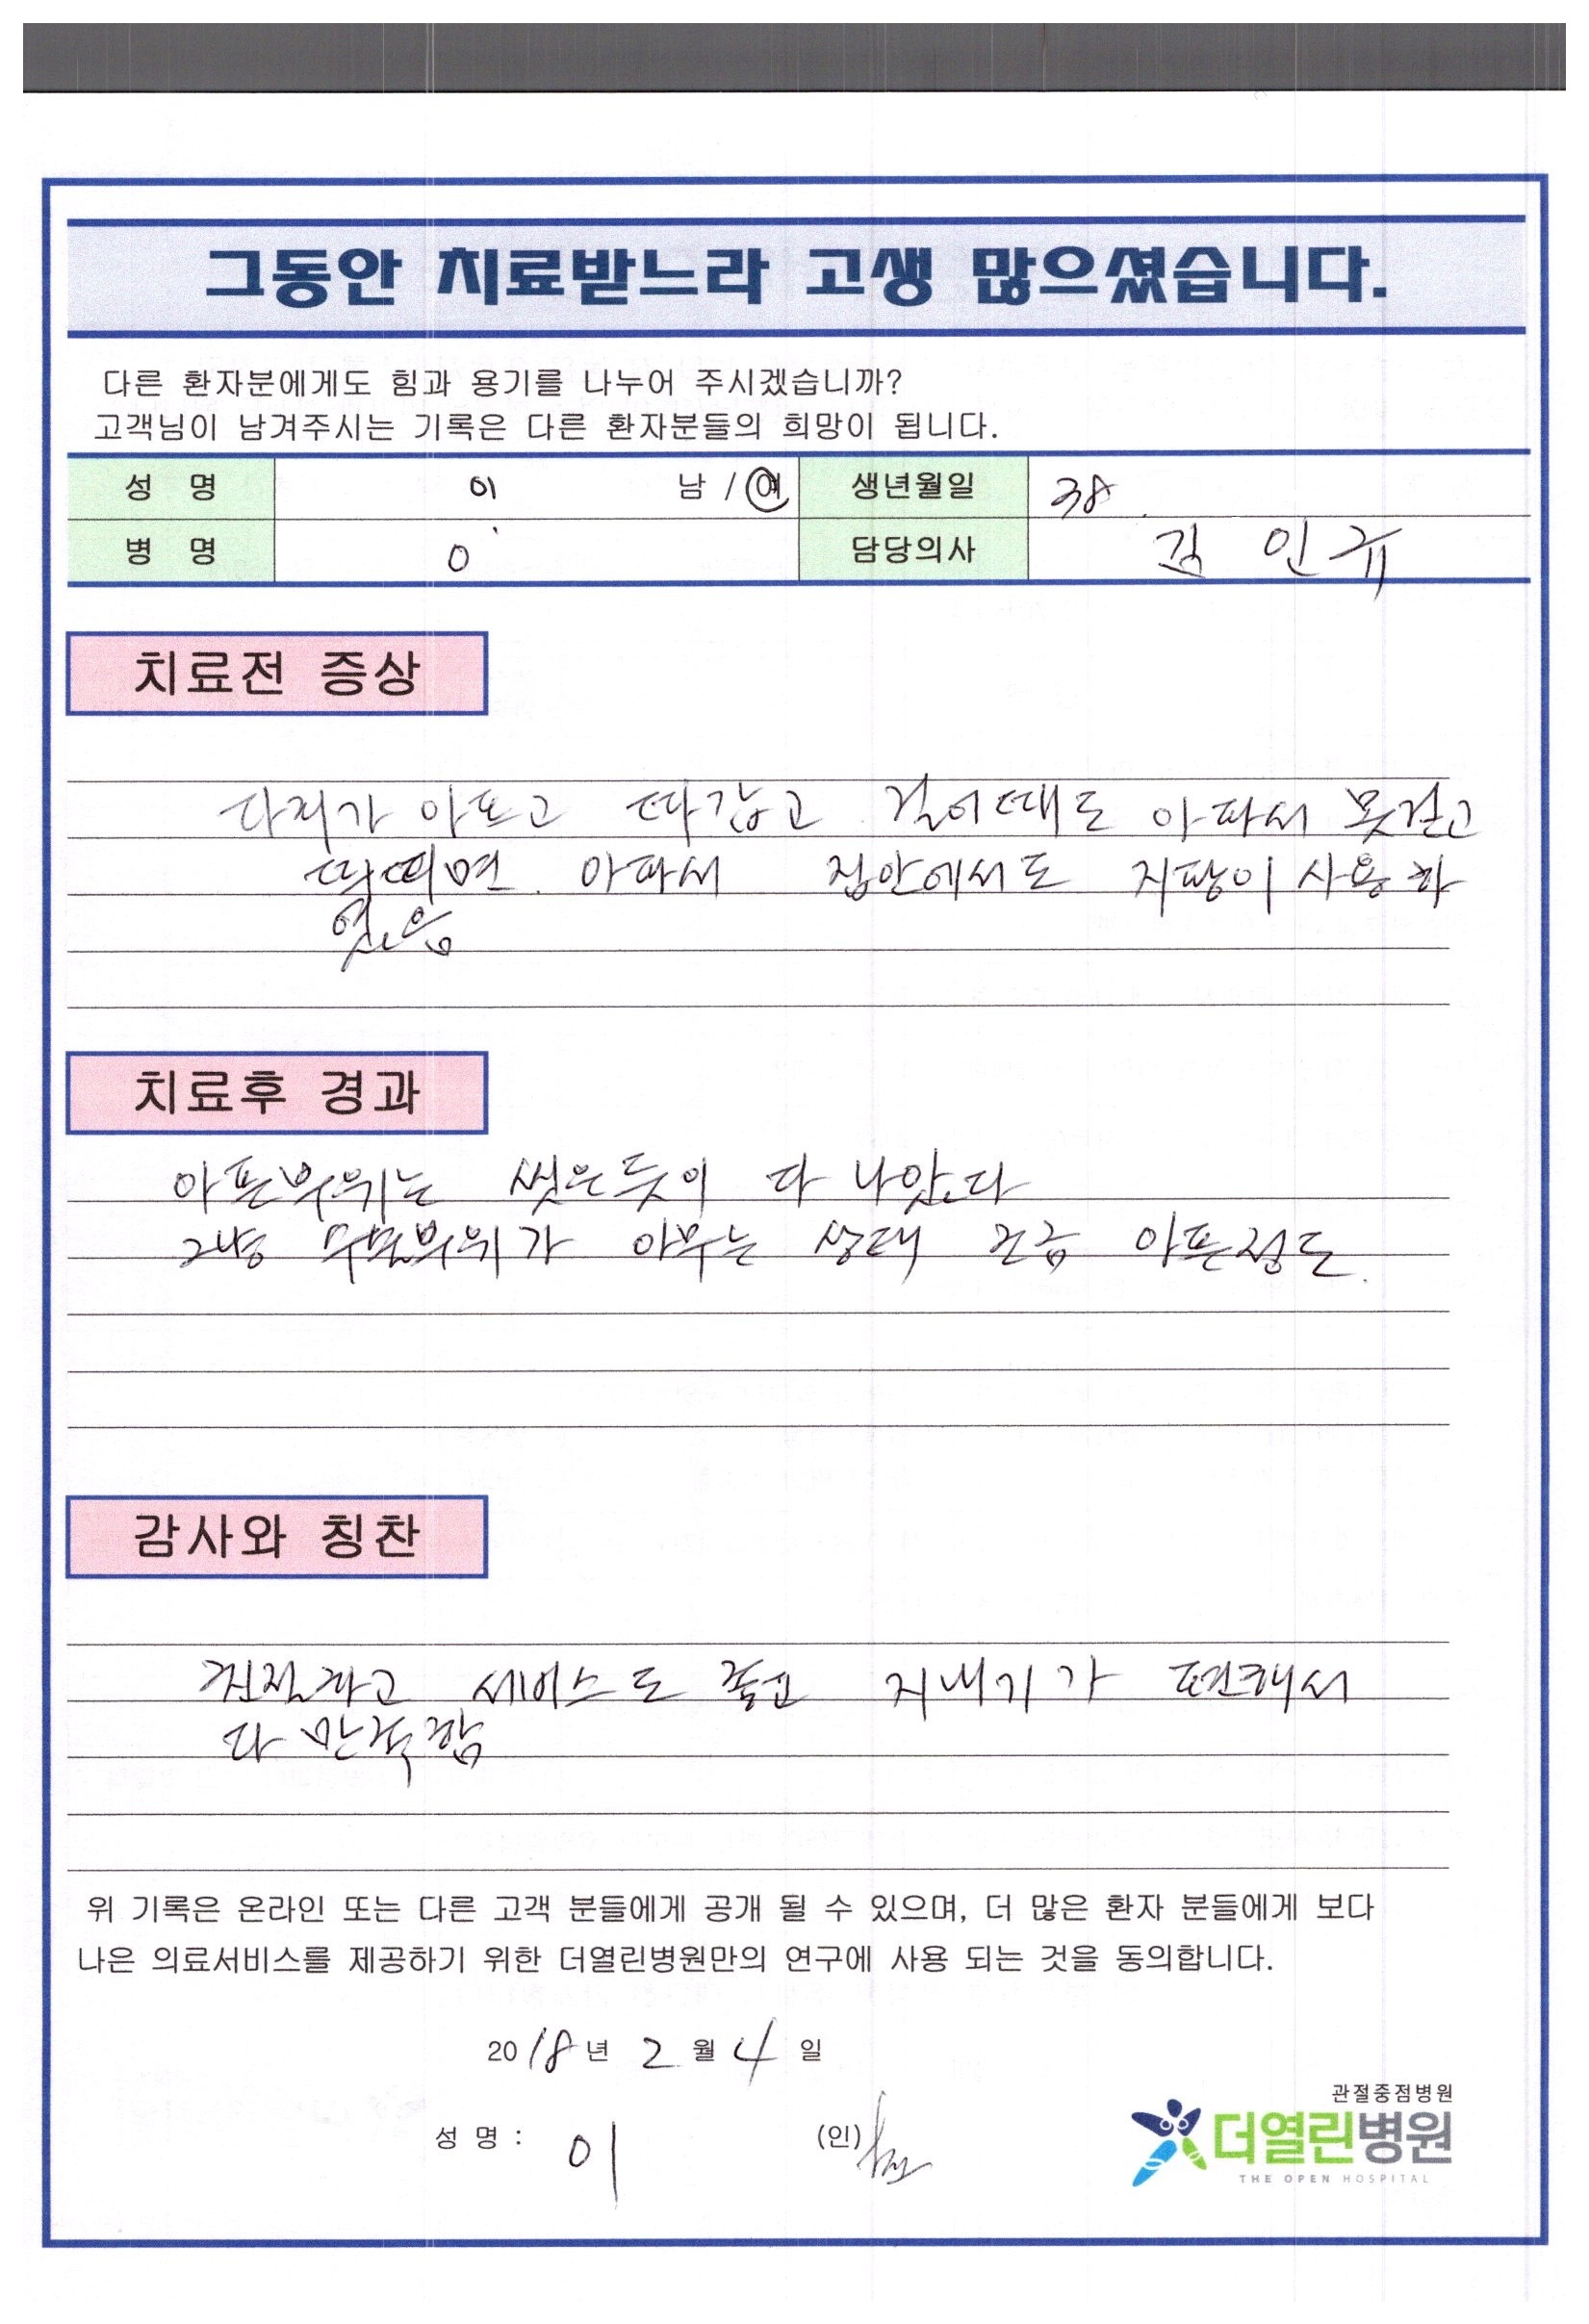 그동안 치료받느라 고생 많으셨습니다.
다른 환자분에게도 힘과 용기를 나누어 주시겠습니까?
고객님이 남겨주시는 기록은 다른 환자분들의 희망이 됩니다.
성 명 이 남 / 여 생년월일 38
병 명 담당의사 김 인규
치료전 증상
다리가 아프고 따갑고 걸어때도 아파서 못걷고
아파서 집안에서도 지팡이 사용하
였음
치료후 경과
아픈부위는 씻은듯이 다 나았다
그냥 부위가 아무는 상태 조금 아픈정도
감사와 칭찬
친절하고 세비스도 좋고 지내기가 편해서
다 만족함
위 기록은 온라인 또는 다른 고객 분들에게 공개 될 수 있으며, 더 많은 환자 분들에게 보다
나은 의료서비스를 제공하기 위한 더열린병원만의 연구에 사용 되는 것을 동의합니다.
2018년 2월 4일
성 명 : 이 (인)
관절중점병원
더열린병원
THE OPEN HOSPITAL